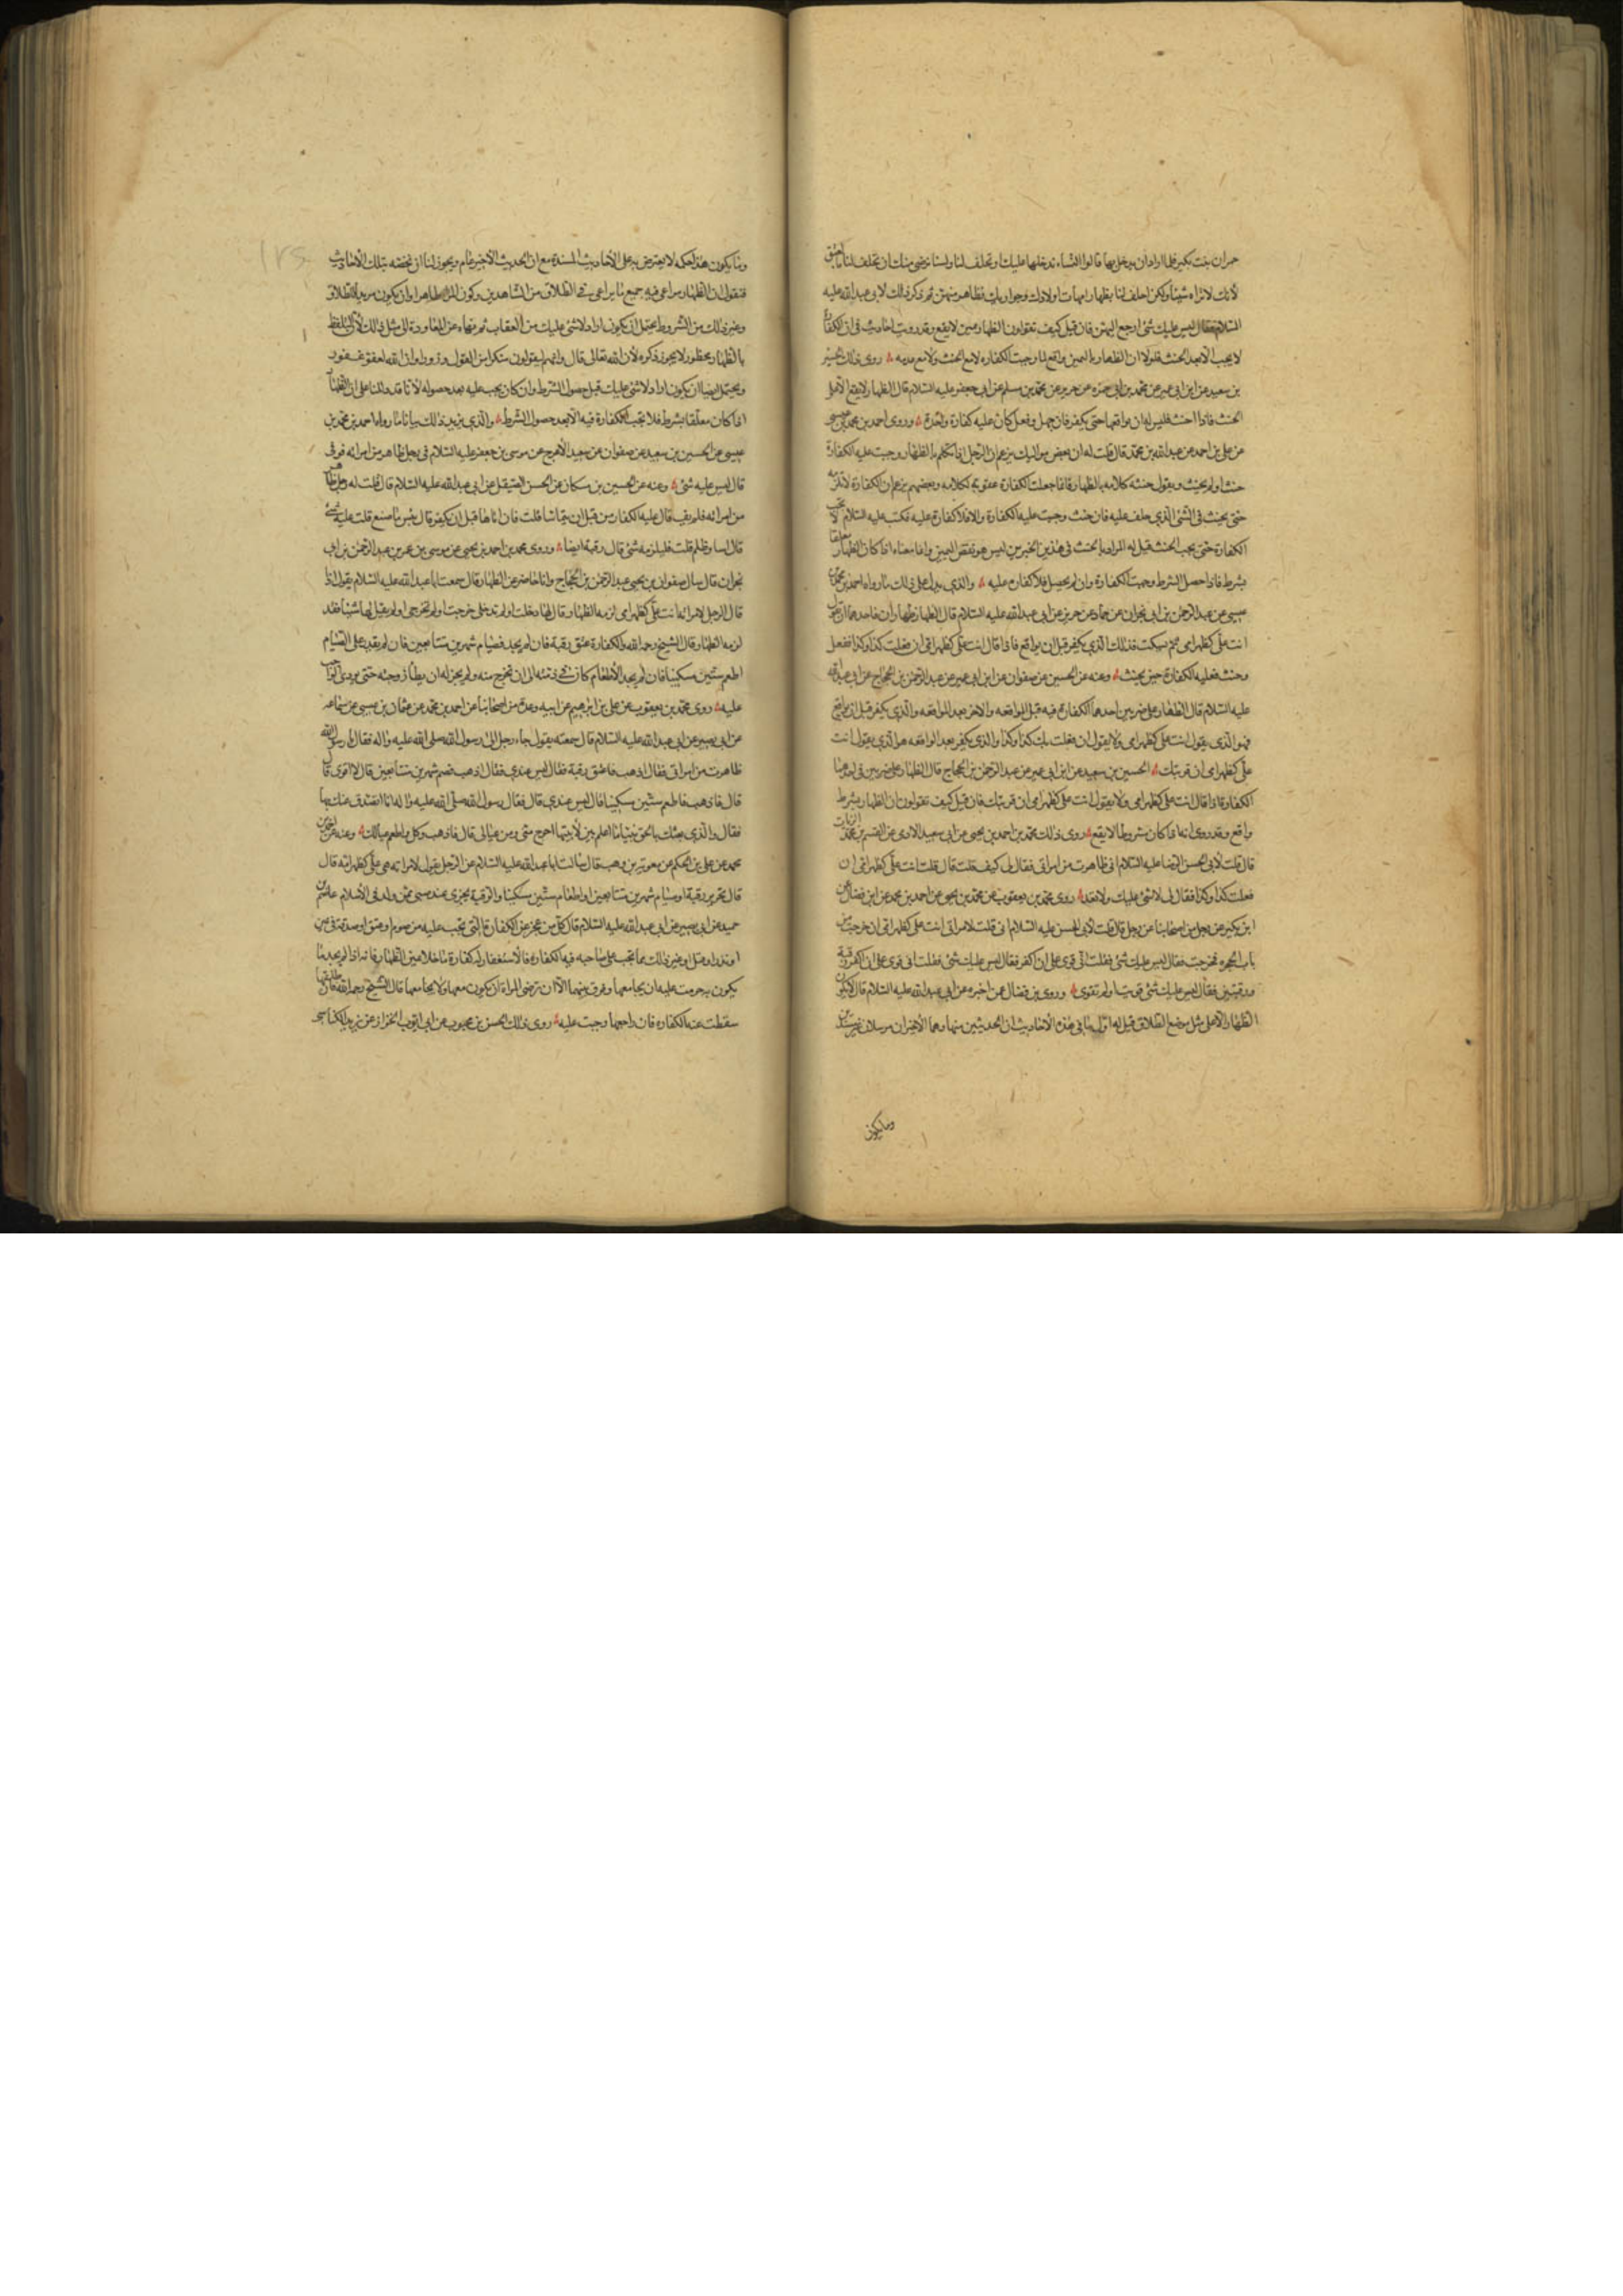 حمران بنت بكير فلما اراد ان يدخل بها قالوا النساء ندخلها عليك او تحلف لنا ولسنا نرضى منك ان تحلف لنا بالعتق
لأنك لا تراه شيئا ولكن احلف لنا بظهار امهات اولادك وجواريك فظاهر منهن ثم ذكر ذلك لابى عبد الله عليه
السلام فقال ليس عليك شئ ارجع اليهن فان قيل كيف تقولون الظهار بيمين لا يقع وقد رويت احاديث فى ان الكفارة
لا يجب الا بعد الحنث فلولا ان الظهار باليمين واقع لما وجبت الكفاره لا مع الحنث ولا مع عدمه روى ذلك الحسين
بن سعيد عن ابن ابى عمير عن محمد بن ابى حمزه عن حريز عن محمد بن مسلم عن ابى جعفر عليه السلام قال الظهار لا يقع الا على
الحنث فاذا احنث فليس له ان يواقعها حتى يكفر فان جهل وفعل كان عليه كفارة واحدة وروى احمد بن محمد بن عيسى
عن على بن احمد عن عبد الله بن محمد قال قلت له ان بعض مواليك يزعم ان الرجل اذا تكلم بالظهار وجبت عليه الكفارة
حنث او لم يحنث ويقول حنثه كلامه بالظهار وانما جعلت الكفارة عقوبة لكلامه وبعضهم يزعم ان الكفارة لا تلزمه
حتى يحنث فى الشئ الذى حلف عليه فان حنث وجبت عليه الكفارة والا فلا كفارة عليه فكتب عليه السلام لا تجب
الكفارة حتى يجب الحنث قيل له المراد بالحنث فى هذين الخبرين ليس هو نقض اليمين وانما معناه اذا كان الظهار معلقا
بشرط فاذا حصل الشرط وجبت الكفارة وان لم يحصل فلا كفارة عليه والذى يدل على ذلك ما رواه احمد بن محمد بن
عيسى عن عبد الرحمن بن ابى نجران عن حماد عن حريز عن ابى عبد الله عليه السلام قال الظهار ظهاران فاحدهما ان يقول
انت على كظهر امى ثم يسكت فذلك الذى يكفر قبل ان يواقع فاذا قال انت على كظهر امى ان فعلت كذا وكذا ففعل
وحنث فعليه الكفارة حين يحنث وعنه عن الحسين عن صفوان عن ابن ابى عمير عن عبد الرحمن بن الحجاج عن ابى عبد الله
عليه السلام قال الظهار على ضربين احدهما الكفارة فيه قبل المواقعه والاخر بعد المواقعه والذى يكفر قبل ان يواقع
فهو الذى يقول انت على كظهر امى ولا يقول ان فعلت بك كذا وكذا والذى يكفر بعد المواقعه هو الذى يقول انت
على كظهر امى ان قربتك الحسين بن سعيد عن ابن ابى عمير عن عبد الرحمن بن الحجاج قال الظهار على ضربين فى احدهما
الكفارة اذا قال انت على كظهر امى ولا يقول انت على كظهر امى ان قربتك فان قيل كيف تقولون ان الظهار بشرط
واقع وقد روى انه اذا كان مشروطا لا يقع روى ذلك محمد بن احمد بن يحيى عن ابى سعيد الادمى عن القسم بن محمد الزيات
قال قلت لأبى الحسن الرضا عليه السلام انى ظاهرت من امراتى فقال لى كيف قلت قال قلت انت على كظهر امى ان
فعلت كذا وكذا فقال لى لا شئ عليك ولا تعد روى محمد بن يعقوب عن محمد بن يحيى عن احمد بن محمد عن ابن فضال عن
ابن بكير عن رجل من اصحابنا عن رجل قال قلت لأبى الحسن عليه السلام انى قلت لامراتى انت على كظهر امى ان خرجت من
باب الحجره فخرجت فقال ليس عليك شئ فقلت انى قوى على ان اكفر فقال ليس عليك شئ فقلت انى قوى على ان اكفر رقبة
ورقبتين فقال ليس عليك شئ قويت او لم تقوى وروى بن فضال عمن اخبره عن ابى عبد الله عليه السلام قال لا يكون
الظهار الا على مثل موضع الطلاق قيل له اول ما فى هذه الأحاديث ان الحديثين منها وهما الأخيران مرسلان غير مسندين
وما يكون
وما يكون هذا حكمه لا يعترض به على الأحاديث المسندة مع ان الحديث الأخير عام ويجوز لنا ان نخصه بتلك الأحاديث
فنقول ان الظهار يراعى فيه جميع ما يراعى فى الطلاق من الشاهدين وكون المرأة طاهرا وان يكون مريدا للطلاق
وغير ذلك من الشروط يحتمل ان يكون اراد لا شئ عليك من العقاب ثم نهاه عن المعاودة الى مثل ذلك لأن التلفظ
بالظهار محظور لا يجوز ذكره لأن الله تعالى قال وانهم ليقولون منكرا من القول وزورا وان الله لعفو غفور
ويحتمل ايضا ان يكون اراد لا شئ عليك قبل حصول الشرط وان كان يجب عليه بعد حصوله لأنا قد دللنا على ان الظهار
اذا كان معلقا بشرط فلا تجب الكفارة فيه الا بعد حصول الشرط والذى يزيد ذلك بيانا ما رواه احمد بن محمد بن
عيسى عن الحسين بن سعيد عن صفوان عن سعيد الأعرج عن موسى بن جعفر عليه السلام فى رجل ظاهر من امراته فوفى
قال ليس عليه شئ وعنه عن الحسين بن مسكان عن الحسن الصيقل عن ابى عبد الله عليه السلام قال قلت له رجل ظاهر
من امراته فلم يف قال عليه الكفارة من قبل ان يتماسا قلت فان اتاها قبل ان يكفر قال بئس ما صنع قلت عليه شئ
قال اسا وظلم قلت فيلزمه شئ قال رقبة ايضا وروى محمد بن احمد بن يحيى عن موسى بن عمر عن عبد الرحمن بن ابى
نجران قال سال صفوان بن يحيى عبد الرحمن بن الحجاج وانا حاضر عن الظهار قال سمعت ابا عبد الله عليه السلام يقول اذا
قال الرجل لامراته انت على كظهر امى لزمه الظهار قال لها دخلت او لم تدخلى خرجت او لم تخرجى او لم يقل لها شيئا فقد
لزمه الظهار قال الشيخ رحمه الله والكفارة عتق رقبة فان لم يجد فصيام شهرين متتابعين فان لم يقدر على الصيام
اطعم ستين مسكينا فان لم يجد الأطعام كان فى ذمته الى ان تخرج منه ولم يجز له ان يطأ زوجته حتى يؤدى الواجب
عليه روى محمد بن يعقوب عن على بن ابراهيم عن ابيه وعدة من اصحابنا عن احمد بن محمد عن عثمان بن عيسى عن سماعه
عن ابى بصير عن ابى عبد الله عليه السلام قال سمعته يقول جاء رجل الى رسول الله صلى الله عليه واله فقال يا رسول الله
ظاهرت من امراتى فقال اذهب فاعتق رقبة فقال ليس عندى فقال اذهب فصم شهرين متتابعين قال لا اقوى
قال فاذهب فاطعم ستين مسكينا قال ليس عندى قال فقال رسول الله صلى الله عليه واله انا اتصدق عنك بها
فقال والذى بعثك بالحق نبيا ما اعلم بين لابتيها احوج منى ومن عيالى قال فاذهب وكل واطعم عيالك وعنه عن احمد بن
محمد عن على بن الحكم عن معوية بن وهب قال سالت ابا عبد الله عليه السلام عن الرجل يقول لامراته هى على كظهر امه قال
قال تحرير رقبة او صيام شهرين متتابعين او اطعام ستين مسكينا والرقبة يجزى عنه صبى ممن ولد فى الأسلام عاصم بن
حميد عن ابى بصير عن ابى عبد الله عليه السلام قال كل من عجز عن الكفارة التى تجب عليه من صوم او عتق او صدقة فى يمين
او نذر او قتل او غير ذلك مما تجب على صاحبه فيه الكفارة فالأستغفار له كفارة ما خلا يمين الظهار فانه اذا لم يجد ما
يكون به حرمت عليه ان يجامعها وفرق بينهما الا ان ترضى المراة ان يكون معها ولا يجامعها قال الشيخ رحمه الله فان طلقها
سقطت عنه الكفاره فان راجعها وجبت عليه روى ذلك الحسن بن محبوب عن ابى ايوب الخزاز عن يزيد الكناسى